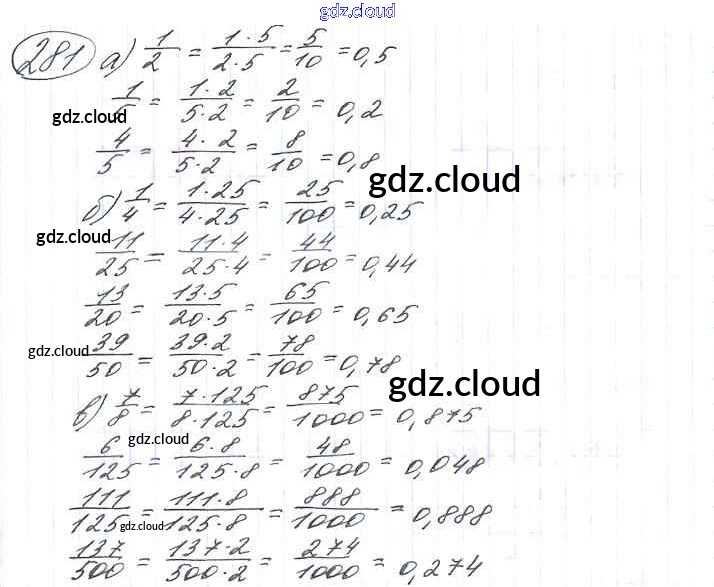 gdz.cloud
281 а) 1/2 = 1·5/2·5 = 5/10 = 0,5
1/5 = 1·2/5·2 = 2/10 = 0,2
gdz.cloud
4/5 = 4·2/5·2 = 8/10 = 0,8
gdz.cloud
б) 1/4 = 1·25/4·25 = 25/100 = 0,25
gdz.cloud
11/25 = 11·4/25·4 = 44/100 = 0,44
13/20 = 13·5/20·5 = 65/100 = 0,65
gdz.cloud
39/50 = 39·2/50·2 = 78/100 = 0,78
gdz.cloud
в) 7/8 = 7·125/8·125 = 875/1000 = 0,875
gdz.cloud
6/125 = 6·8/125·8 = 48/1000 = 0,048
111/125 = 111·8/125·8 = 888/1000 = 0,888
gdz.cloud
137/500 = 137·2/500·2 = 274/1000 = 0,274